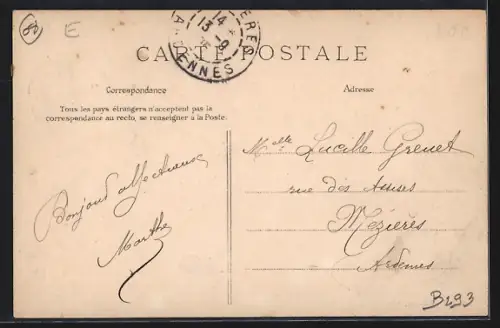 E
14
13 - 9
ARDENNES
CARTE POSTALE
Correspondance
Tous les pays étrangers n'acceptent pas la
correspondance au recto, se renseigner à la Poste.
Bonjour affectueux
Marthe
Adresse
Melle Lucille Grenet
rue des
Mézières
Ardennes
B293